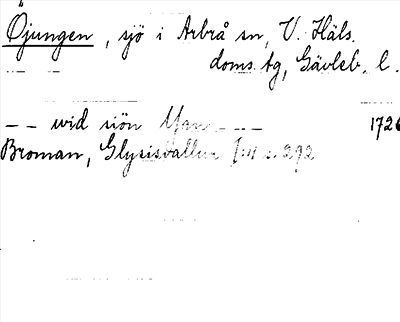 Öjungen, sjö i Arbrå sn, V. Häls.
doms tg, Gävleb. l.
-- wid siön ---- 1726
Broman, Glysisvallur I:II s. 292